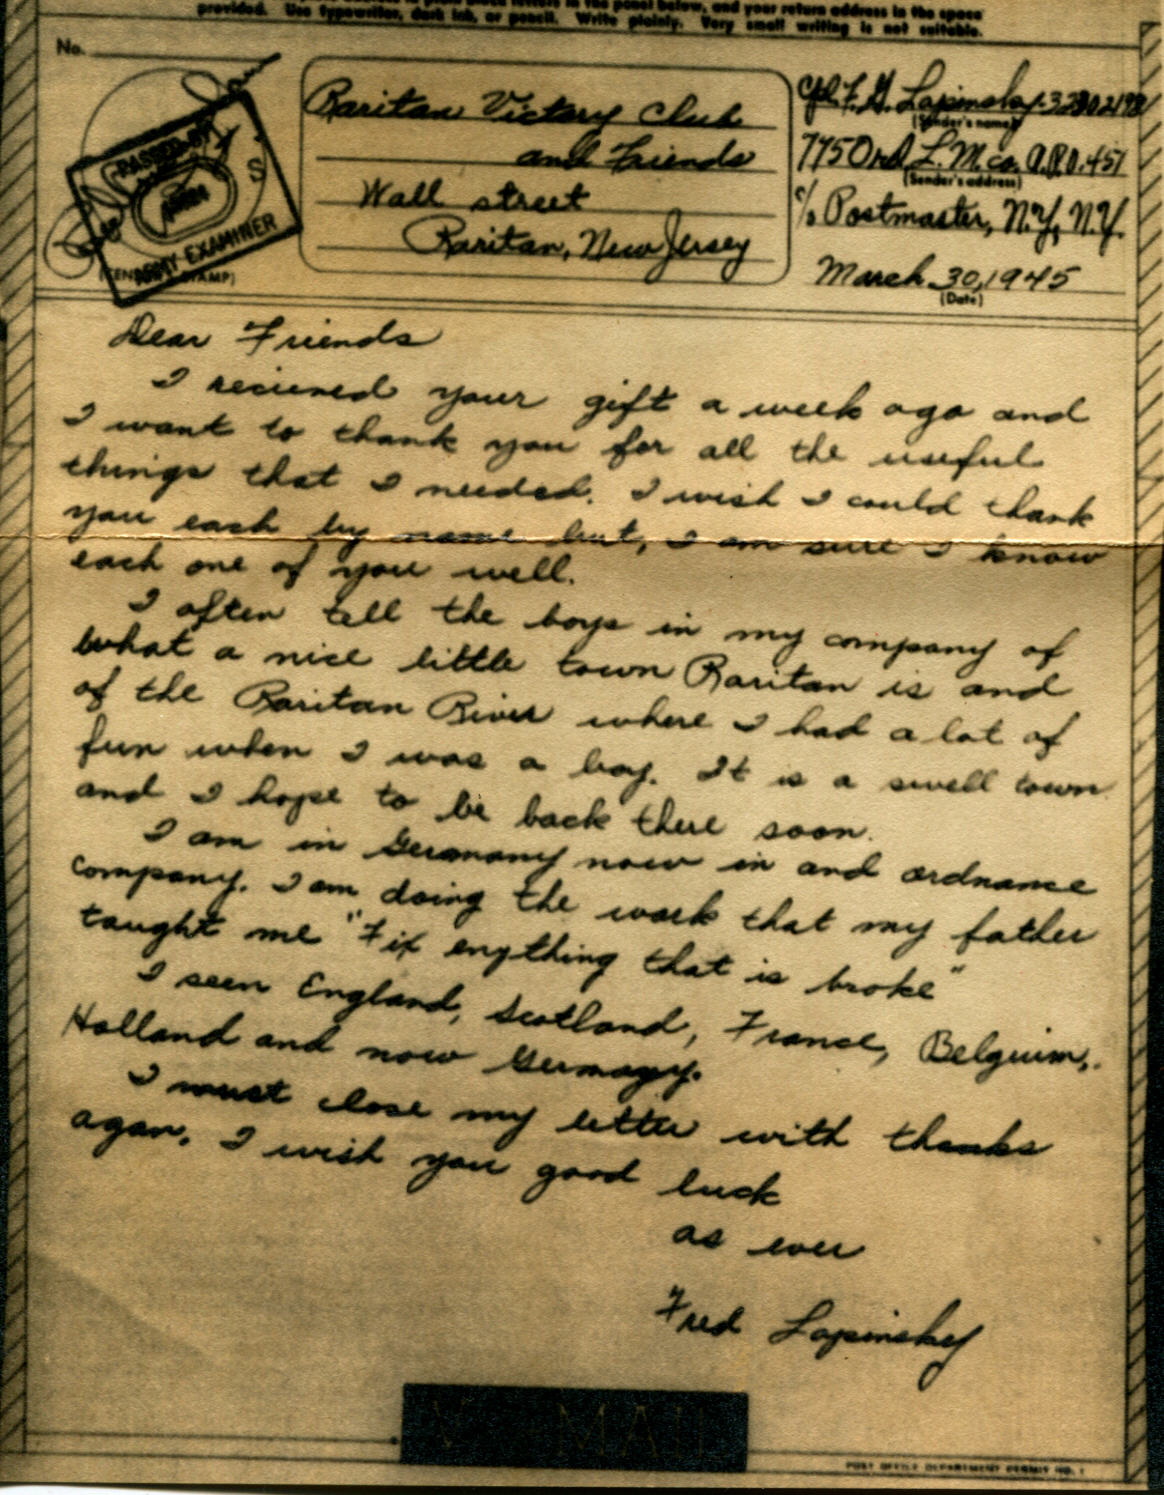 in the panel below, and your return address in the space
provided. Use typewriter, dark ink, or pencil. Write plainly. Very small writing is not suitable.
No.
PASSED BY
S
ARMY EXAMINER
STAMP)
Raritan Victory Club
and Friends
Wall street
Raritan, New Jersey
F. G. Lapinsky
(Sender's name)
775 Ord L. M. co. A.P.O. 451
(Sender's address)
c/o Postmaster, N.Y, N.Y.
March 30, 1945
(Date)
Dear Friends
I recieved your gift a week ago and
I want to thank you for all the useful
things that I needed. I wish I could thank
you each by name but, I am sure I know
each one of you well.
I often tell the boys in my company of
what a nice little town Raritan is and
of the Raritan River where I had a lot of
fun when I was a boy. It is a swell town
and I hope to be back there soon.
I am in Germany now in and ordnance
company. I am doing the work that my father
taught me "Fix enything that is broke"
I seen England, Scotland, France, Belguim,
Holland and now Germany.
I must close my letter with thanks
agan. I wish you good luck
as ever
Fred Lapinsky
V-MAIL
POST OFFICE DEPARTMENT PERMIT NO. 1